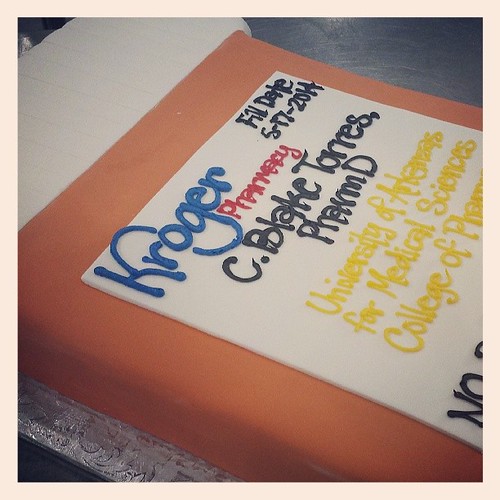 Kroger
Pharmacy
Fill Date
5-17-2014
C. Blake Torres,
PharmD
University of Arkansas
for Medical Sciences
College of Pharm
NO